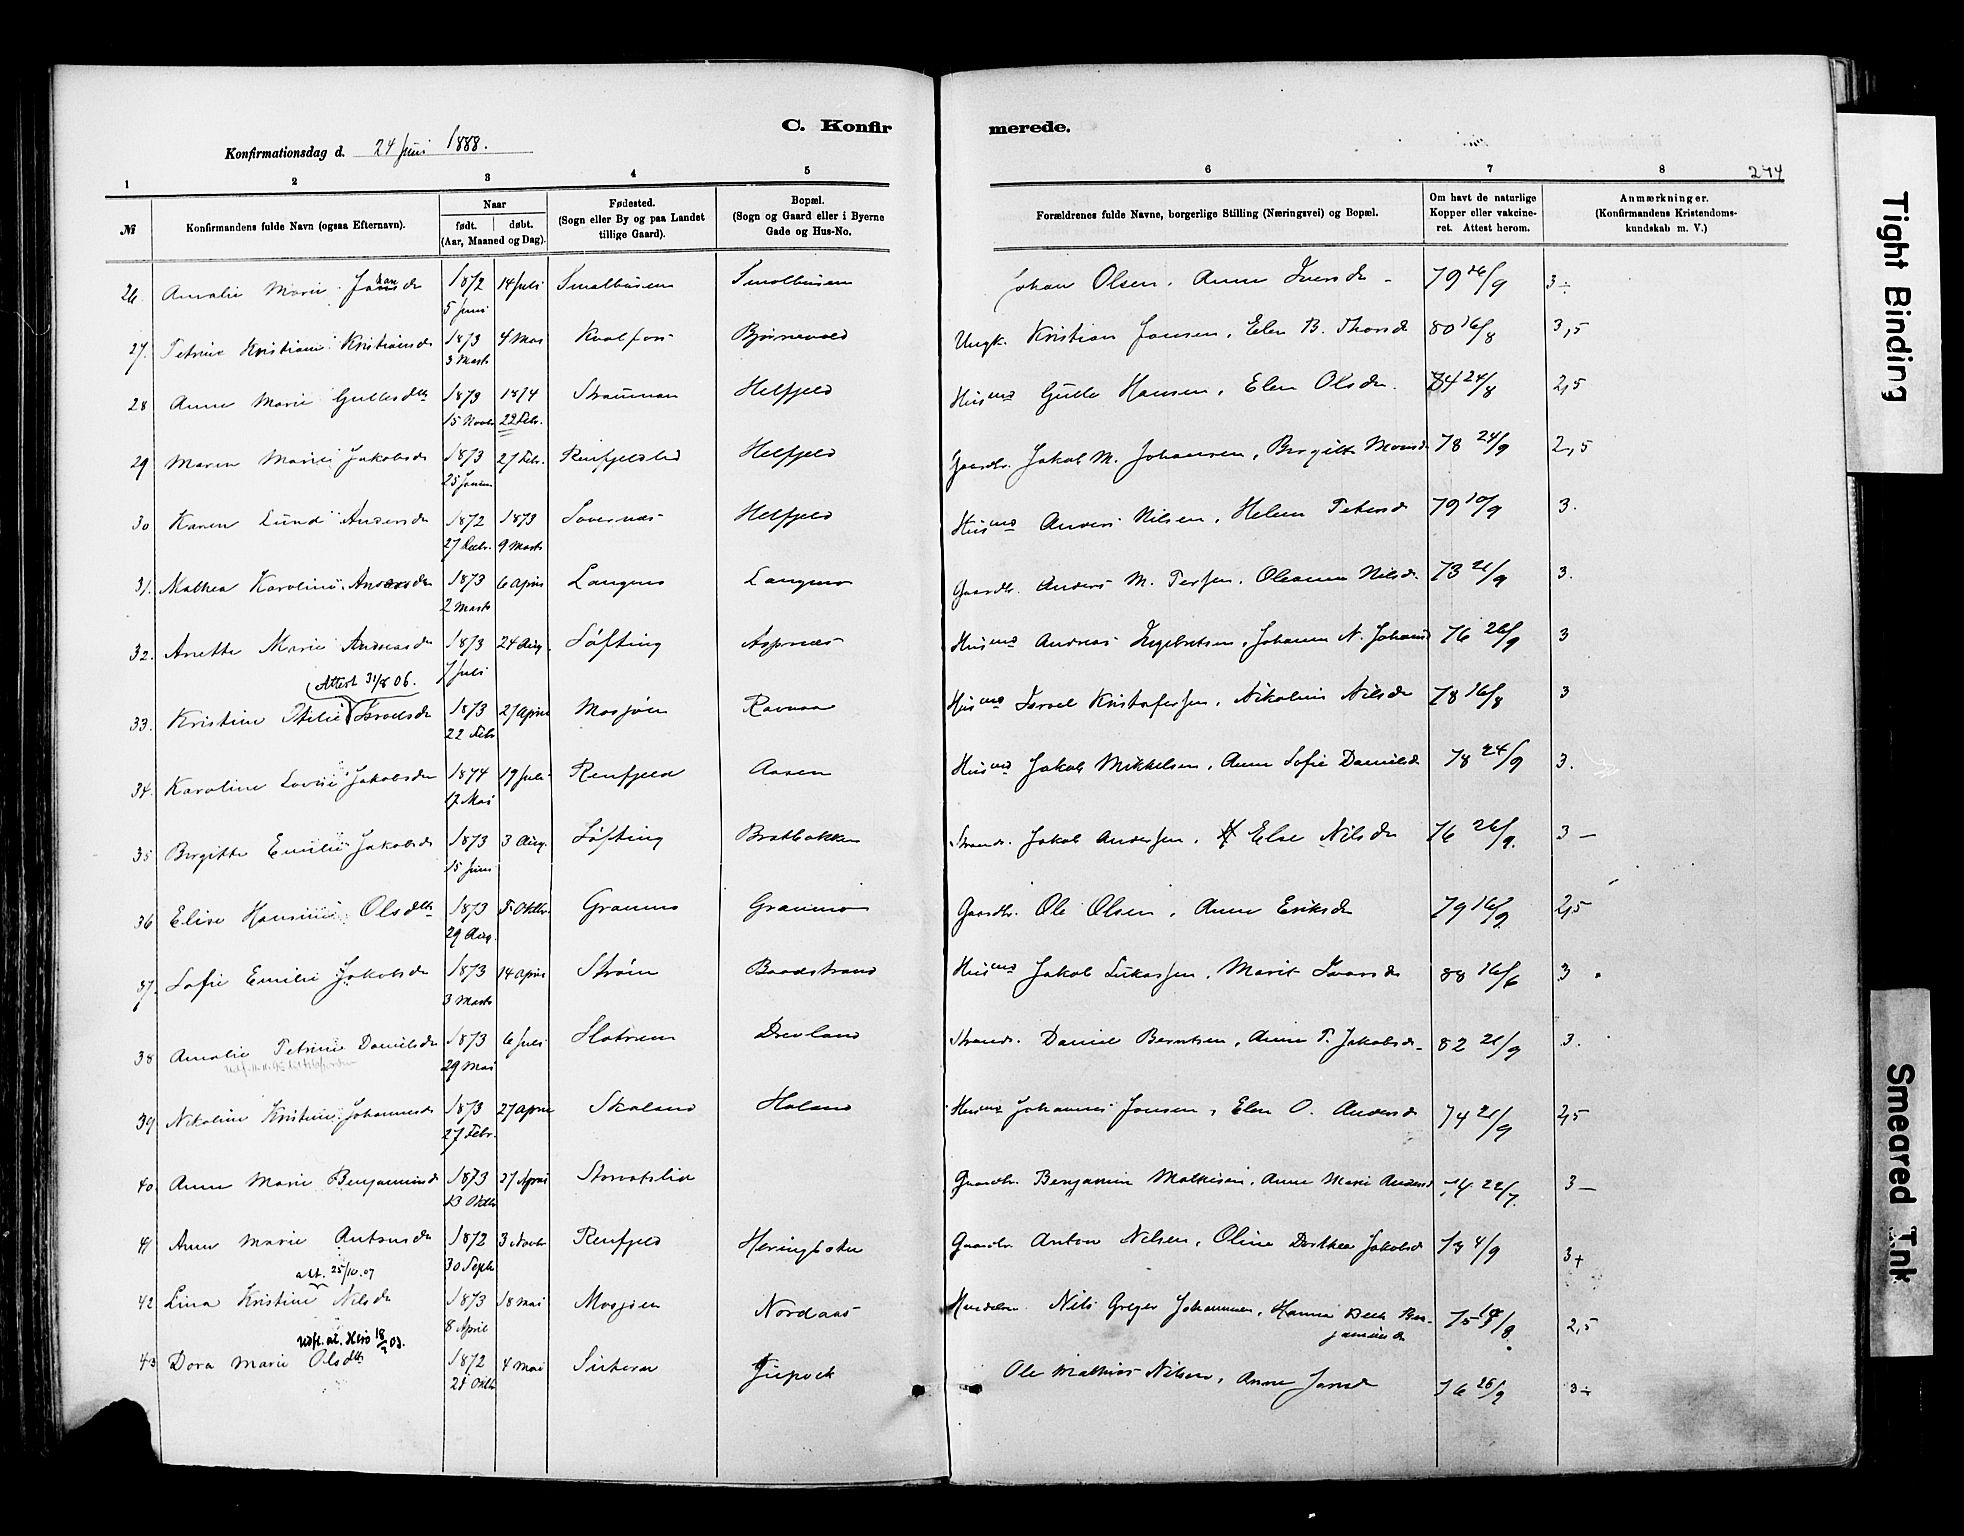 C. Konfir merede.
Konfirmationsdag d. 24 Juni 1888.
244
1 2 3 4 5 6 7 8
№ Konfirmandens fulde Navn (ogsaa Efternavn). Naar født. døbt. (Aar, Maaned og Dag). Fødested. (Sogn eller By og paa Landet tillige Gaard). Bopæl. (Sogn og Gaard eller i Byerne Gade og Hus-No. Forældrenes fulde Navne, borgerlige Stilling (Næringsvei) og Bopæl. Om havt de naturlige Kopper eller vakcineret. Attest herom. Anmærkninger. (Konfirmandens Kristendomskundskab m. V.)
26. Amalie Marie 1872 5 Juni 14 Juli Smalbusen Smalbusen Johan Olsen, Anne Iversdr 79 26/9 3÷
27. Petrine Kristiane Kristiansdr 1873 3 Marts 4 Mai Kvalfors Bjørnevold Ungk. Kristian Jansen, Elen B. Thorsdr 80 16/8 3,5
28 Anne Marie Gullesdtr 1873 15 Novbr 1874 22 Febr. Straumen Helfjeld Husmd Gulle Hansen, Elen Olsdr. 84 24/8 2,5
29 Maren Marie Jakobsdr 1873 25 Januar 27 Febr. Renfjeldlid Helfjeld Gaardbr. Jakob M. Johansen, Birgitte Monsdr 78 24/9 2,5
30 Karen Lund Andersdr 1872 27 Decbr. 1873 9 Marts Sovernæs Helfjeld Husmd Anders Nilsen, Helene Petersdr 79 10/9 3.
31. Mathea Karoline Andersdr 1873 2 Marts 6 April Langmo Langmo Gaardbr. Anders M. Persen, Oleanna Nilsdr. 73 21/9 3.
32. Anette Marie Andreasdr 1873 7 Juli 24 Aug. Løfting Aspnæs Husmd Andreas Ingebretsen, Johanna N. Johansdr 76 26/9 3
Attest 31/8 06.
33. Kristine Otilie Israelsdr 1873 22 Febr 27 April Mosjøen Ravnaa Husmd Israel Kristofersen, Nikoline Nilsdr 78 16/8 3
34. Karoline Lovise Jakobsdr 1874 17 Mai 19 Juli Renfjeld Aasen Husmd Jakob Mikkelsen, Anne Sofie Danielsdr 78 24/9 3.
35 Birgitte Emilie Jakobsdr 1873 15 Juni 3 Aug. Løfting Bratbakken Strands. Jakob Andersen, Else Nilsdr 76 26/9. 3 —
36 Elise Hansine Olsdtr 1873 29 Aug. 5 Oktbr. Granmo Granmo Gaardbr. Ole Olsen, Anne Eriksdr 79 16/9 2,5
37. Sofie Emilie Jakobsdr 1873 3 Marts 14 April Strøm Baadstrand Husmd Jakob Lukassen, Marit Ivarsdr 88 16/6 3
38 Amalie Petrine Danielsdr 1873 29 Mai 6 Juli Slotrem Drevland Strands. Daniel Berntsen, Anne P. Jakobsdr. 82 21/9 3.
39 Nikoline Kristine Johannesdr 1873 27 Febr. 27 April Skaland Holand Husmd Johannes Jonsen, Elen O. Andersdr 74 21/9 2,5
40 Anne Marie Benjaminsdr 1873 23 Oktbr 27 April Storvatslid Gaardbr. Benjamin Mathisen, Anne Marie Andersdr 74 22/7. 3 —
41 Anne Marie Antonsdr 1872 30 Septb 3 Novbr Renfjeld Heringboten Gaardbr. Anton Nilsen, Oline Dorthea Jakobsdr 73 4/9 3+
att. 25/10.07
42 Lina Kristine Nilsdr 1873 8 April 18 Mai Mosjøen Nordaas Nils Greger Johannesen, Hanna Benjaminsdr 75 2,5
Udfl. at. Herø
43 Dora Marie Olsdtr 1872 21 Oktbr 4 Mai Ole Mathias Nilsen, Anne Jonsdr 76 26/9 3÷
Tight Binding
Smeared Ink